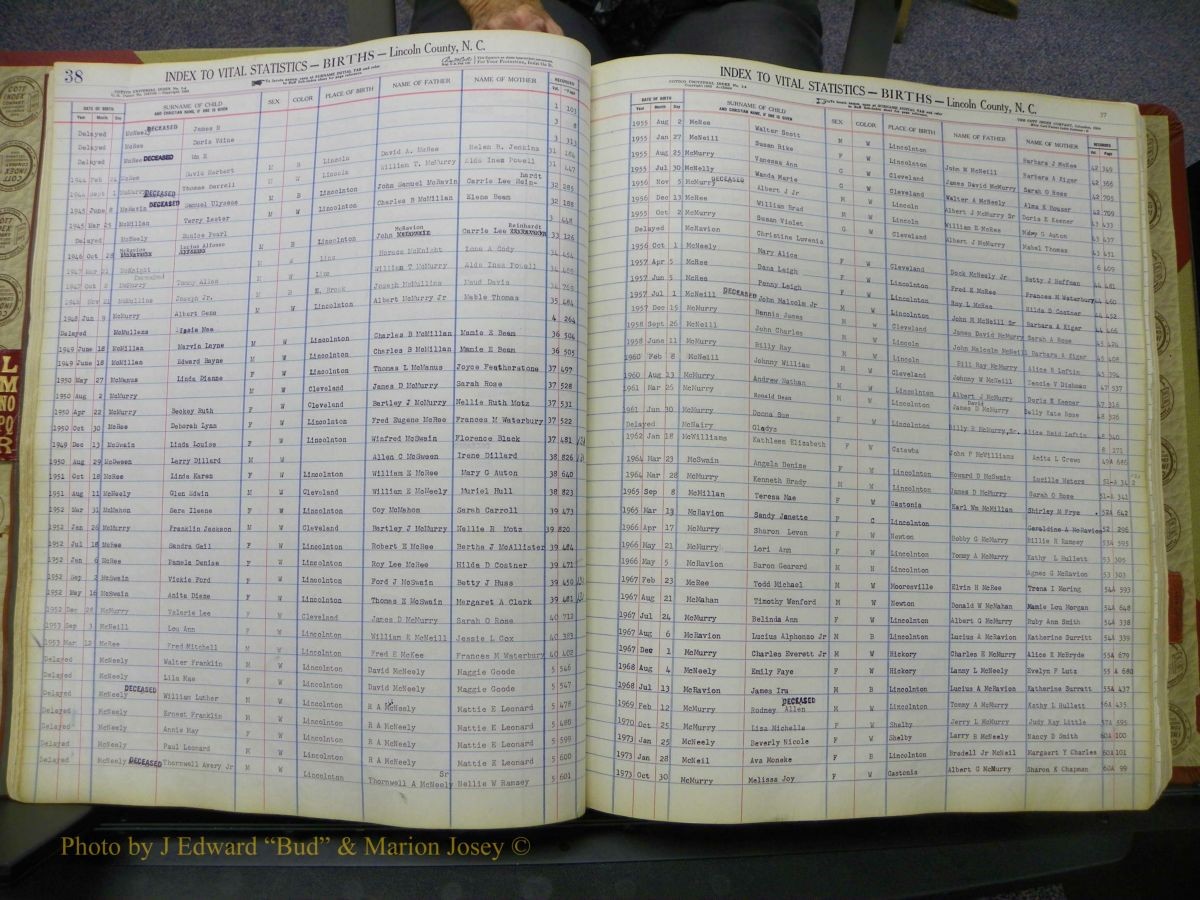 38
INDEX TO VITAL STATISTICS — BIRTHS — Lincoln County, N. C.
DATE OF BIRTH SURNAME OF CHILD SEX COLOR PLACE OF BIRTH NAME OF FATHER NAME OF MOTHER RECORDED
Year Month Day AND CHRISTIAN NAME, IF ONE IS GIVEN Vol. Page
Delayed McNeely DECEASED James R 1 103
Delayed McNeely Doris Vdine 3 8
Delayed McRee DECEASED Wm R 3 313
1944 Feb McRee David Herbert M W Lincoln David A. McRee Helen B. Jenkins 31 184
1944 Sept 1 McMurry DECEASED Thomas Darrell M W Lincoln William T. McMurry Alda Ines Powell 31 447
1945 June 8 McRavin DECEASED Samuel Ulysene M B Lincolnton John Samuel McRavin Carrie Lee Rein-hardt 32 285
1945 Mar 25 McMillan Terry Lester M W Lincolnton Charles B McMillan Elene Beam 32 188
Delayed McNeely Eunice Pearl 3 448
1946 Oct 28 McRavion Lucius Alfonso M B Lincolnton John McRavion Carrie Lee Reinhardt 33 126
McKnight Horace McKnight Lona A Cody 34 454
1947 Oct 2 McMurry Tommy Allen William T McMurry Alda Ines Powell 34 405
1948 Nov 21 McMullins Joseph Jr. M B Joseph McMullins Maud Davis 34 769
1948 Jun 9 McMurry Albert Gene M W Lincolnton Albert McMurry Jr Mable Thomas 35 484
Delayed McMullens Mae 4 264
1949 June 18 McMillan Marvin Layne M W Lincolnton Charles B McMillan Mamie E Beam 36 504
1949 June 18 McMillan Edward Hayne M W Lincolnton Charles B McMillan Mamie E Beam 36 505
1950 May 27 McManus Linda Dianne F W Lincolnton Thomas L McManus Joyce Featherstone 37 497
1950 Aug 2 McMurry M W Cleveland James D McMurry Sarah Rose 37 528
1950 Apr 22 McMurry Beckey Ruth F W Cleveland Bartley J McMurry Nellie Ruth Motz 37 531
1950 Oct 30 McRee Deborah Lynn F W Lincolnton Fred Eugene McRee Frances M Waterbury 37 522
1949 Dec 13 McSwain Linda Louise F W Lincolnton Winfred McSwain Florence Black 37 481
1950 Aug 29 McSween Larry Dillard M W Allen C McSween Irene Dillard 38 826
1951 Oct 18 McRee Linda Karen F W Lincolnton William E McRee Mary G Auton 38 640
1951 Aug 11 McNeely Glen Edwin M W Cleveland William E McNeely Muriel Hull 38 823
1952 Mar 31 McMahon Sara Ilsene F W Lincolnton Coy McMahon Sarah Carroll 39 473
1952 Jan 26 McMurry Franklin Jackson M W Cleveland Bartley J McMurry Nellie R Motz 39 820
1952 Jul 18 McRee Sandra Gail F W Lincolnton Robert E McRee Bertha J McAllister 39 484
1952 Jan 6 McRee Pamela Denise F W Lincolnton Roy Lee McRee Hilda D Costner 39 471
1952 Sep 2 McSwain Vickie Ford F W Lincolnton Ford J McSwain Betty J Huss 39 450
1952 May 16 McSwain Anita Diane F W Lincolnton Thomas E McSwain Margaret A Clark 39 481
1952 Dec 28 McMurry Valerie Lee F W Cleveland James D McMurry Sarah O Rose 40 712
1953 Sep 3 McNeill Lou Ann F W Lincolnton William E McNeill Jessie L Cox 40 383
1953 Mar 12 McRee Fred Mitchell M W Lincolnton Fred E McKee Frances M Waterbury 40 402
Delayed McNeely Walter Franklin M W Lincolnton David McNeely Maggie Goode 5 546
Delayed McNeely Lila Mae F W Lincolnton David McNeely Maggie Goode 5 547
Delayed McNeely DECEASED William Luther M W Lincolnton R A McNeely Mattie E Leonard 5 478
Delayed McNeely Ernest Franklin M W Lincolnton R A McNeely Mattie E Leonard 5 480
Delayed McNeely Annie May F W Lincolnton R A McNeely Mattie E Leonard 5 599
Delayed McNeely Paul Leonard M W Lincolnton R A McNeely Mattie E Leonard 5 600
Delayed McNeely DECEASED Thornwell Avery Jr M W Lincolnton Thornwell A McNeely Sr Nellie W Ramsey 5 601
37
INDEX TO VITAL STATISTICS — BIRTHS — Lincoln County, N. C.
DATE OF BIRTH SURNAME OF CHILD SEX COLOR PLACE OF BIRTH NAME OF FATHER NAME OF MOTHER RECORDED
Year Month Day AND CHRISTIAN NAME, IF ONE IS GIVEN Vol. Page
1955 Aug 2 McRee Walter Scott M W Lincolnton Barbara J McKee 42 349
1955 Jan 27 McNeill Susan Rike F W Lincolnton John M McNeill Barbara A Kiger 42 366
1955 Aug 25 McMurry Vanessa Ann F W Cleveland James David McMurry Sarah O Rose 42 705
1955 Jul 30 McNelly Wanda Marie G W Cleveland Walter A McNeely Alma K Houser 42 709
1956 Nov 5 McMurry DECEASED Albert J Jr M W Lincoln Albert J McMurry Sr Doris K Keener 47 433
1956 Dec 13 McRee William Brad M W Lincoln William E McRee Mary G Auton 43 437
1955 Oct 2 McMurry Susan Violet G W Cleveland Albert J McMurry Mabel Thomas 43 451
Delayed McRavion Christine Luvenia 6 409
1956 Oct 1 McNeely Mary Alice F W Cleveland Dock McNeely Jr Betty J Heffman 44 481
1957 Apr 5 McRee Dana Leigh F W Lincolnton Fred E McRee Frances M Waterbury 44 460
1957 Jun 5 McRee Penny Leigh F W Lincolnton Roy L McRee Hilda D Costner 44 452
1957 Jul 1 McNeill DECEASED John Malcolm Jr M W Lincolnton John M McNeill Sr Barbara A Kiger 44 466
1957 Dec 15 McMurry Dennis James M W Cleveland James David McMurry Sarah A Rose 45 424
1958 Sept 26 McNeill John Charles M W Lincoln John Malcolm McNeill Barbara A Kiger 45 408
1958 June 11 McMurry Billy Ray M W Lincoln Bill Ray McMurry Alice R Loftin 45 394
1960 Feb 8 McNeill Johnny William M W Cleveland Johnny W McNeill 47 537
1960 Aug 23 McMurry Andrew Nathan M W Lincolnton Albert J McMurry Doris K Keener 47 316
1961 Mar 26 McMurry Ronald Dean M W Lincolnton James David McMurry Sally Kate Rose 48 326
1961 Jun 30 McMurry Donna Sue F W Lincolnton Billy R McMurry, Sr. Alice Reid Loftin 48 340
Delayed McNairy Gladys 8 271
1962 Jan 18 McWilliams Kathleen Elizabeth F W Catawba John F McWilliams Anita L Crews 49A 686
1964 Mar 23 McSwain Angela Denise F W Lincolnton Howard D McSwain Lucille Waters 51-A 342
1964 Mar 28 McMurry Kenneth Brady M W Lincolnton James D McMurry Sarah O Rose 51-A 341
1965 Sep 8 McMillan Teresa Mae F W Gastonia Karl Wm McMillan Shirley M Frye 52A 642
1965 Mar 13 McRavion Sandy Janette F C Lincolnton Geraldine A McRavion 52 296
1966 Apr 17 McMurry Sharon Levan F W Newton Bobby G McMurry Billie H Ramsey 53A 595
1966 May 21 McMurry Lori Ann F W Lincolnton Tommy A McMurry Kathy L Hullett 53 305
1966 May 5 McRavion Baron Gearard M N Lincolnton Agnes G McRavion 53 303
1967 Feb 23 McRee Todd Michael M W Mooresville Elvin H McRee Trena I Moring 54A 593
1967 Aug 21 McMahan Timothy Wenford M W Newton Donald W McMahan Mamie Lou Morgan 54A 648
1967 Jul 24 McMurry Belinda Ann F W Lincolnton Albert G McMurry Ruby Ann Smith 54A 338
1967 Aug 6 McRavion Lucius Alphonzo Jr M B Lincolnton Lucius A McRavion Katherine Surritt 54A 339
1967 Dec 1 McMurry Charles Everett Jr M W Hickory Charles E McMurry Alice E McBryde 55A 679
1968 Aug 4 McNeely Emily Faye F W Hickory Lanny L McNeely Evelyn F Lutz 55 A 680
1968 Jul 13 McRavion James Ira M B Lincolnton Lucius A McRavion Katherine Surratt 55A 437
1969 Feb 12 McMurry Rodney Allen DECEASED M W Lincolnton Tommy A McMurry Kathy L Hullett 56A 435
1970 Oct 25 McMurry Lisa Michelle F W Shelby Jerry L McMurry Judy Kay Little 57A 595
1973 Jan 25 McNeely Beverly Nicole F W Shelby Larry B McNeely Nancy D Smith 60A 100
1973 Jan 28 McNeil Ava Moneke F B Lincolnton Bradell Jr McNeil Margaert Y Charles 60A 101
1973 Oct 30 McMurry Melissa Joy F W Gastonia Albert G McMurry Sharon K Chapman 60A 99
L
M
NO
PQ
R
Photo by J Edward “Bud” & Marion Josey ©